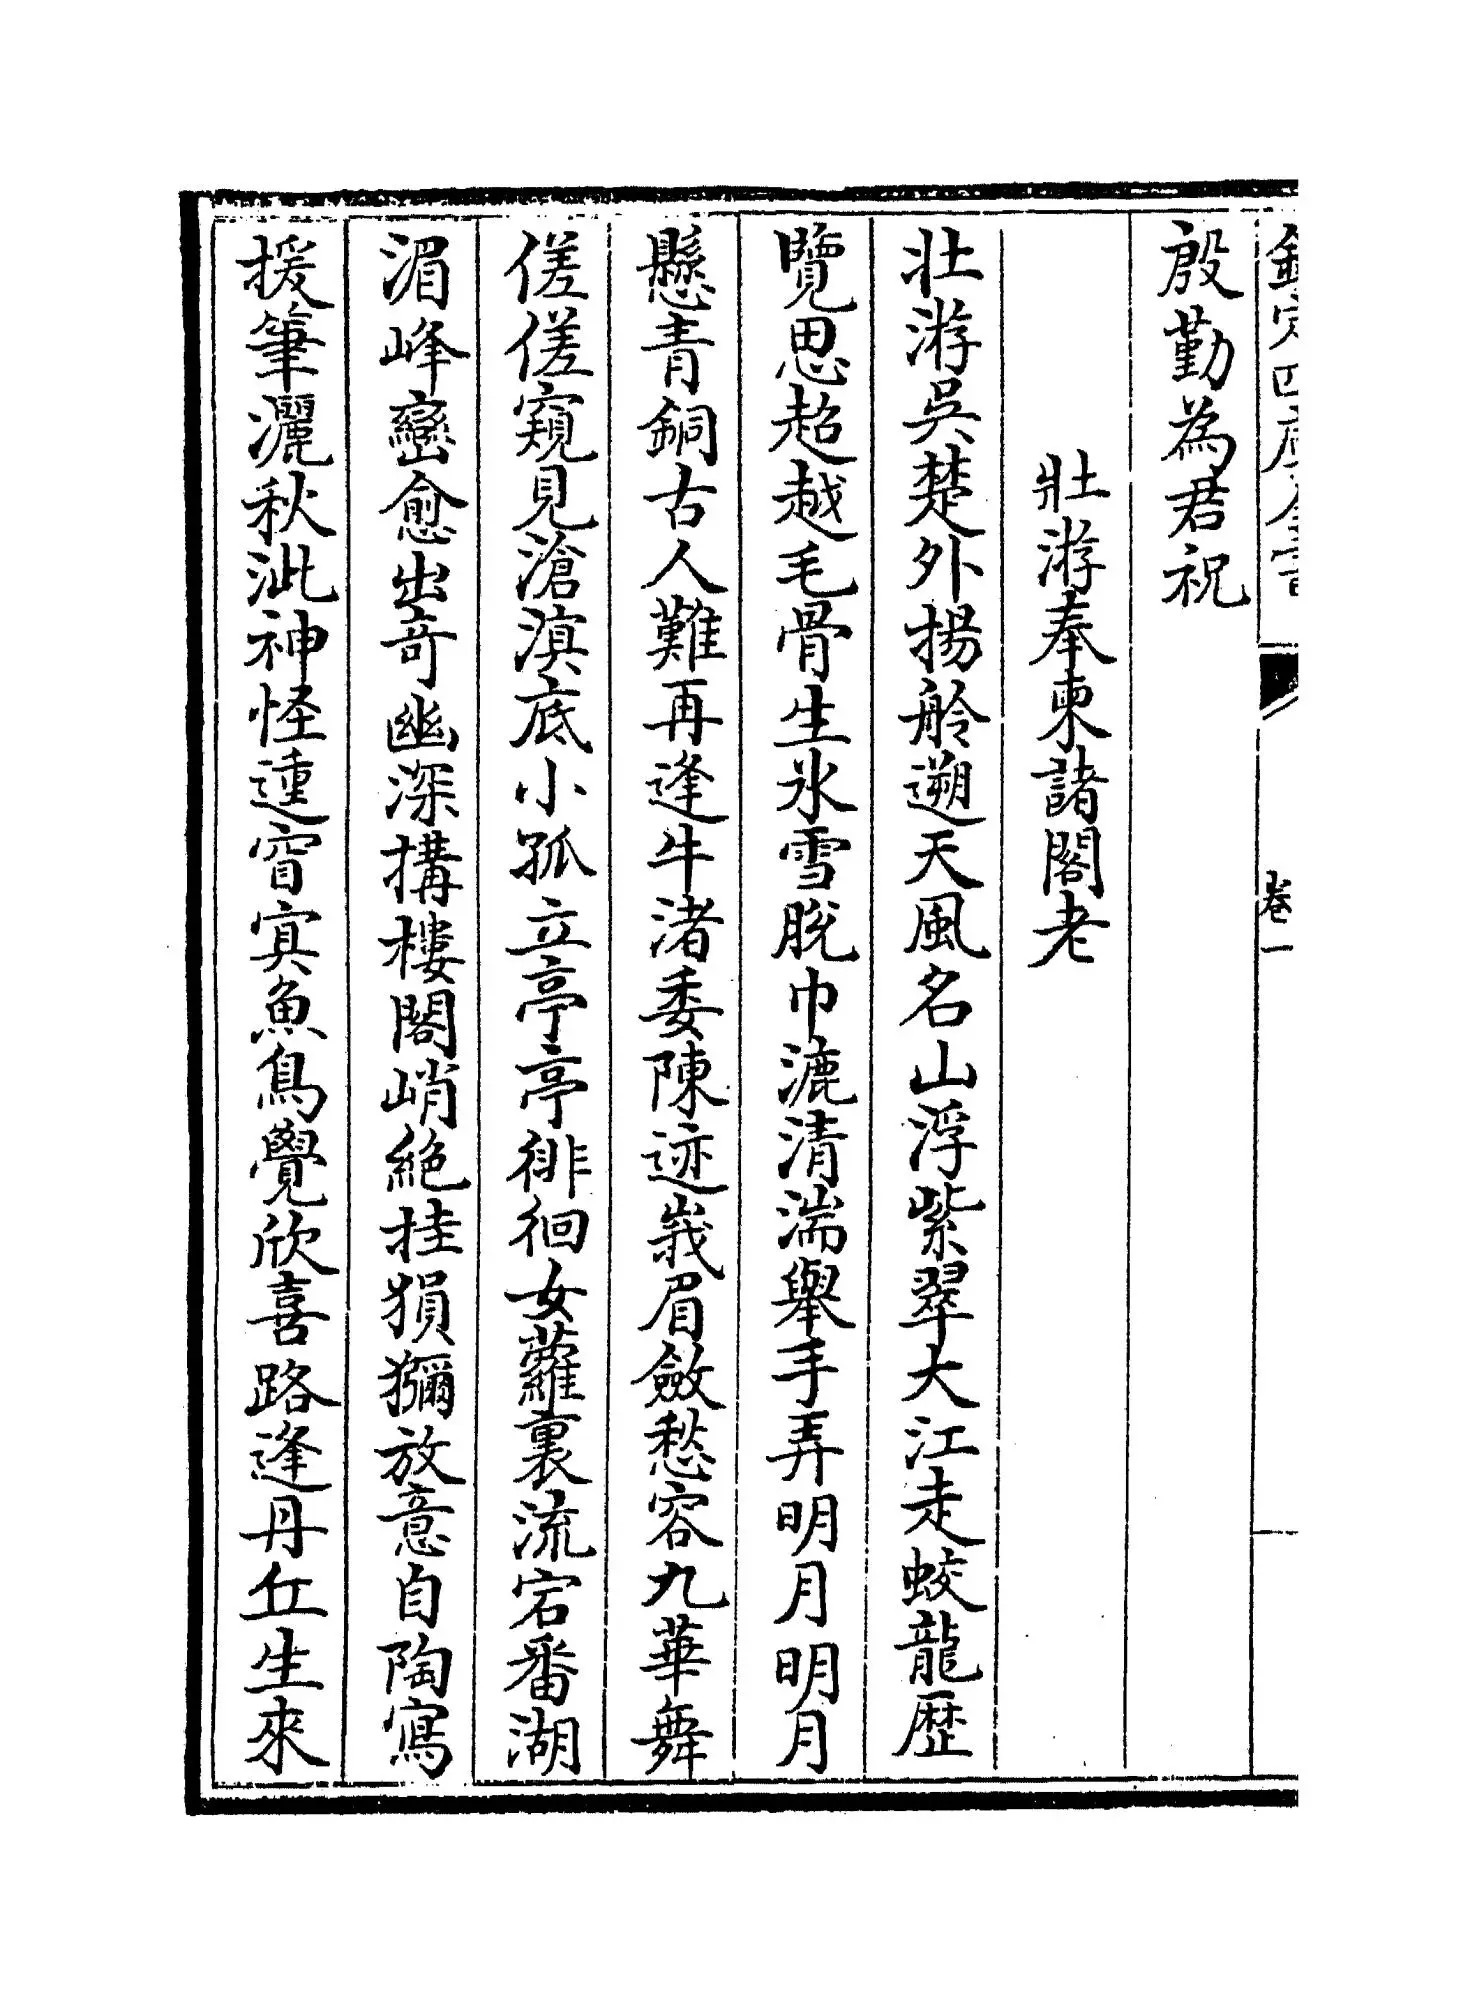 欽定四庫全書
卷一
殷勤為君祝
壯游奉柬諸閣老
壯游吳楚外揚舲遡天風名山浮紫翠大江走蛟龍歴
覽思超越毛骨生氷雪脫巾漉清湍舉手弄明月明月
懸青銅古人難再逢牛渚委陳迹峩眉斂愁容九華舞
傞傞窺見滄溟底小孤立亭亭徘徊女蘿裏流宕番湖
湄峰巒愈出竒幽深搆樓閣峭絶挂猨獼放意自陶寫
援筆灑秋泚神怪運窅寘魚鳥覺欣喜路逢丹丘生來